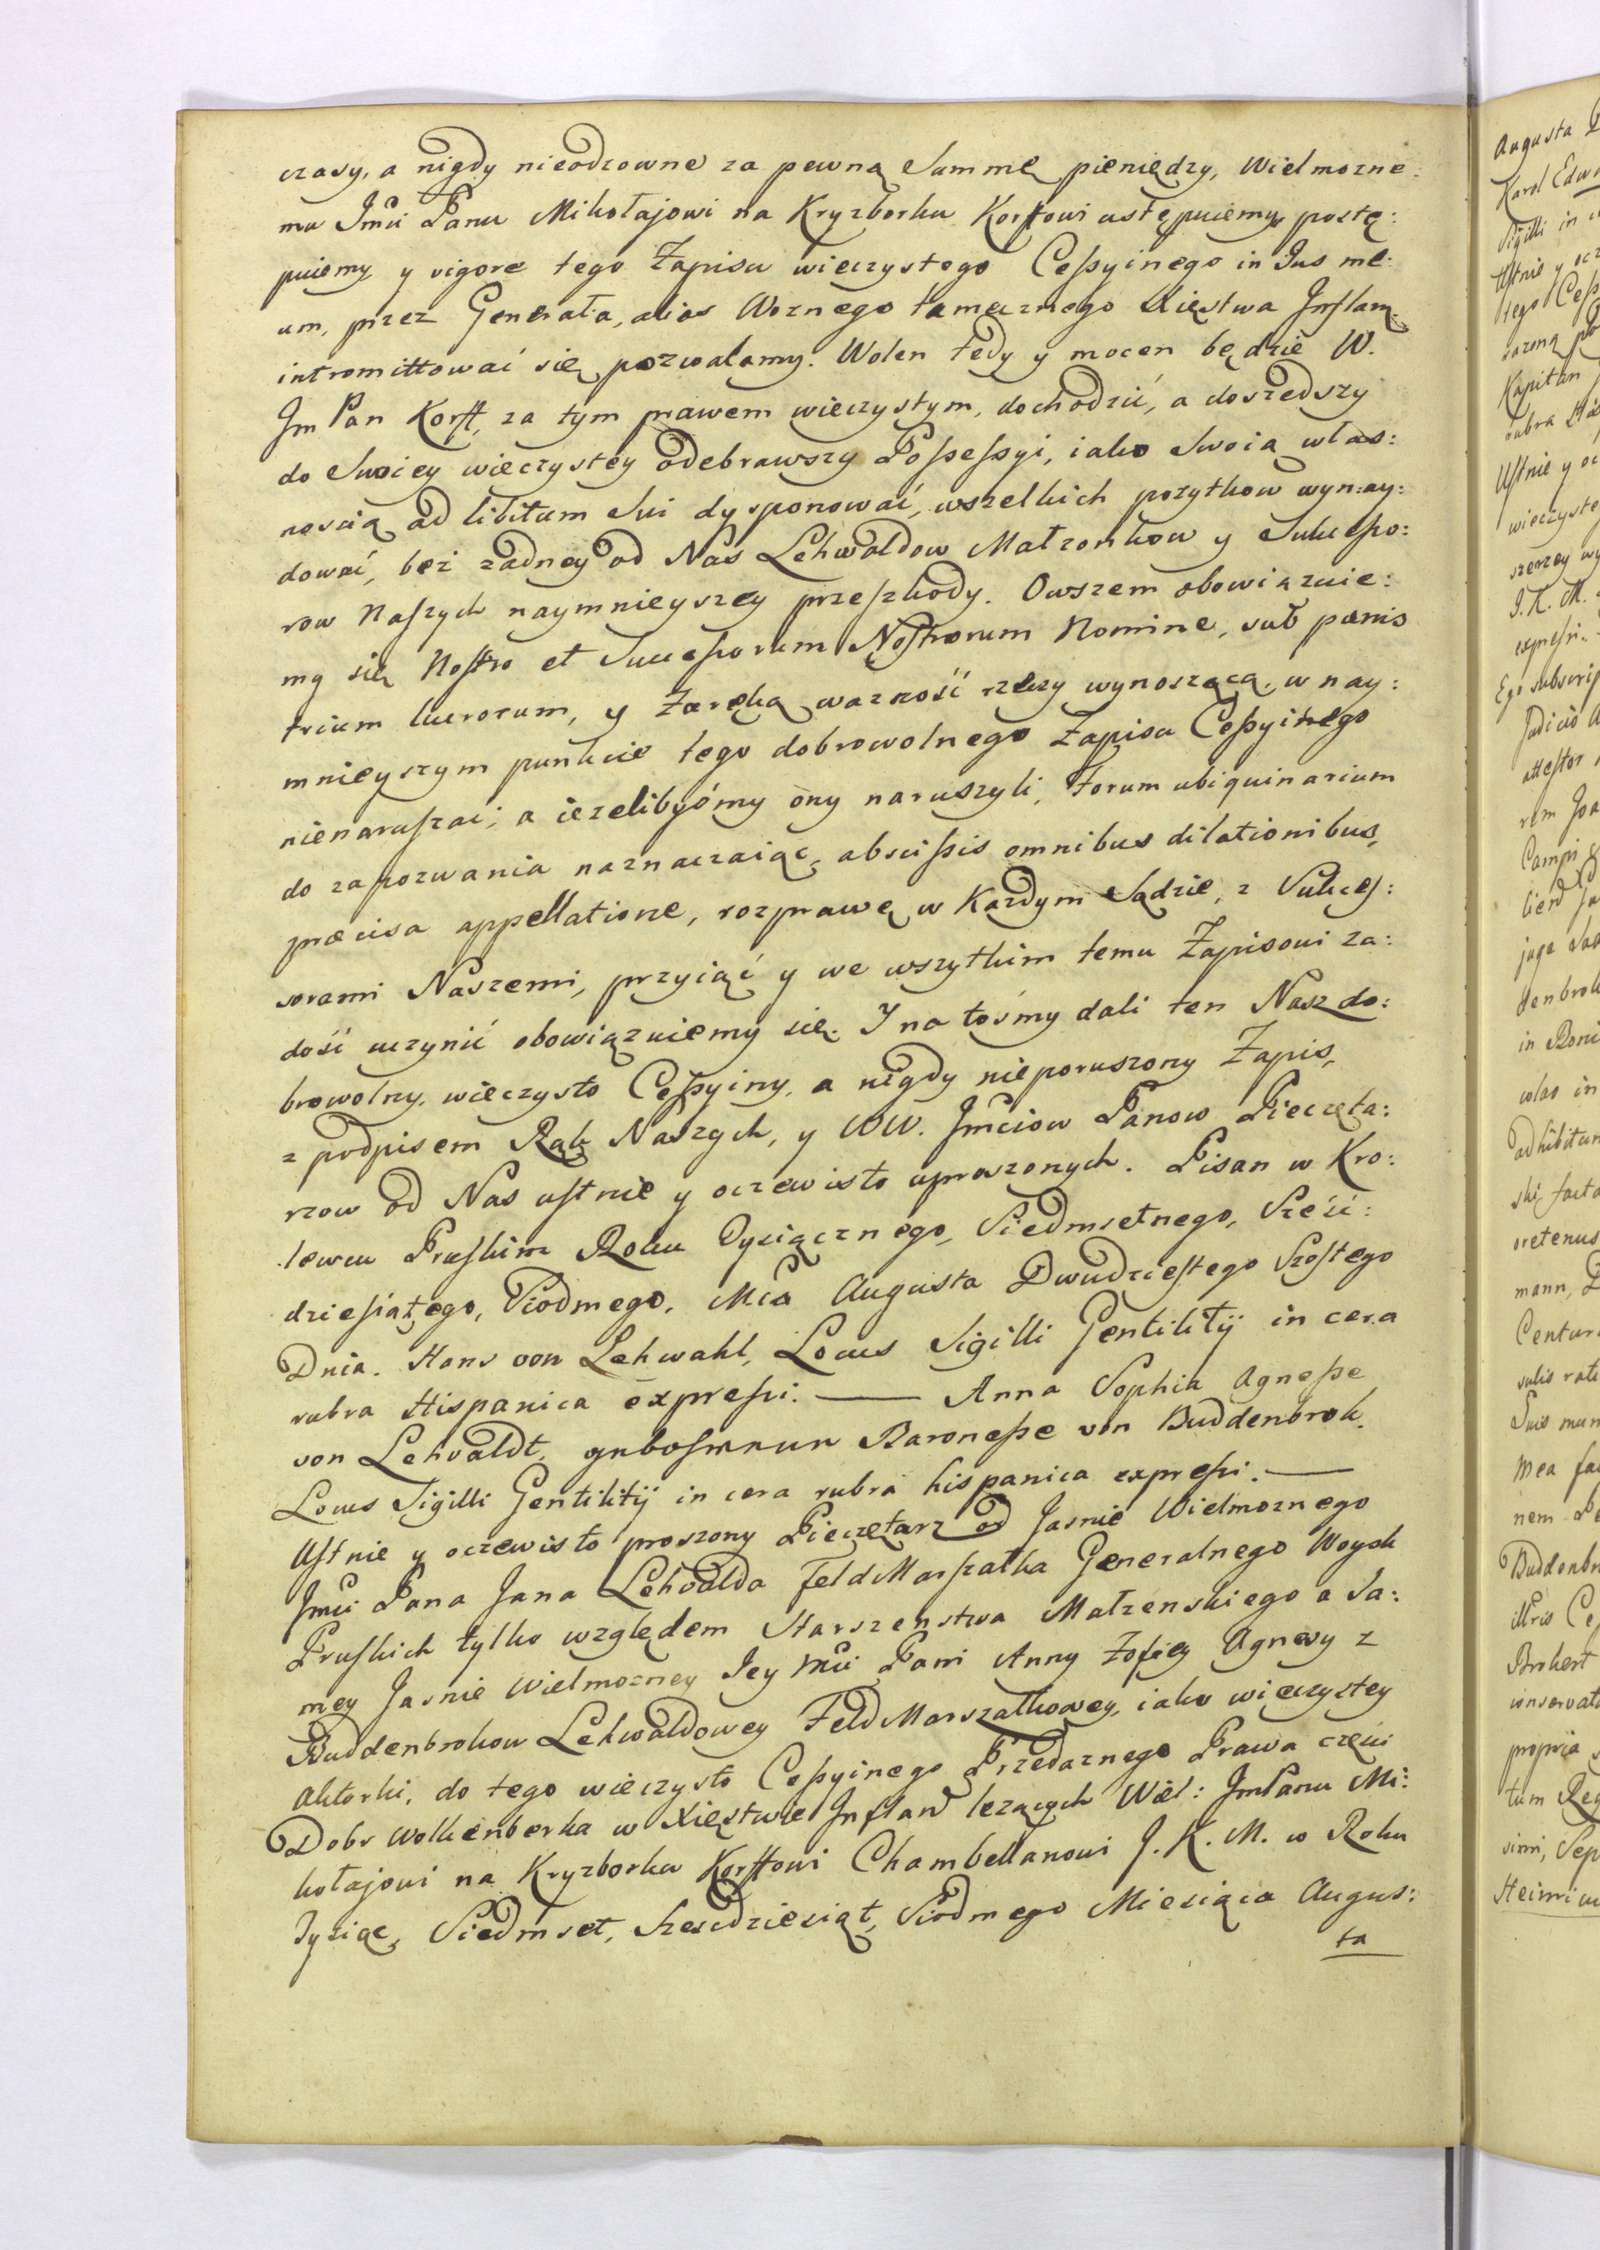 czasy, a nigdy nieodzowne za pewną Summę pieniędzy, Wielmozne:
mu Jmci Panu Mikołajowi na Kryzborku Korffowi ustępuiemy, postę:
puiemy y vigore tego Zapisu wieczystego Ceſsyinego in Jus me:
um, przez Generała, alias Woznego tamecznego Xięstwa Jnflan:
intromittować się pozwalamy. Wolen tedy y mocen będzie W.
Jm Pan Korff, za tym prawem wieczystym, dochodzić, a doszedszy
do Swoiey wieczystey odebrawszy Poſseſsyi, iako Swoią włas:
nością ad libitum Sui dysponować, wszelkich pozytkow wynay:
dować, bez zadney od Nas Lehwaldow Małzonkow y Sukceſso:
row Naſzych naymnieyszey przeſzkody. Owszem obowiązuie:
my się Noſtro et Succeſsorum Noſtrorum Nomine, sub pœnis
trium lucrorum, y Zaręką wazność rzeczy wynoszącą, w nay:
mnieyszym punkcie tego dobrowolnego Zapisu Ceſsyinego
nienaruſzać; a iezelibyśmy ony naruszyli, Forum ubiquinarium
do zapozwania naznaczaiąc, absciſsis omnibus dilationibus,
præcisa appellatione, rozprawę w Kazdym Sądzie, z Sukceſ:
sorami Naszemi, przyiąć y we wszytkim temu Zapisowi za:
dość uczynić obowiązuiemy się. J na tośmy dali ten Nasz do:
browolny, wieczysto Ceſsyiny, a nigdy nieporuszony Zapis,
z podpisem Rąk Naszych, y WW. Jmciow Panow Pieczęta:
rzow od Nas uſtnie y oczewisto uproszonych. Pisan w Kro:
lewcu Pruſkim Roku Tysiącznego, Siedmsetnego, Sześć:
dzieſiątego, Siodmego, Mca Augusta Dwudzieſtego Szoſtego
Dnia. Hans von Lehwahl, Locus Sigilli Gentilitij in cera
rubra Hispanica expreſsi. — Anna Sophia Agneſse
von Lehvaldt, gebohrnen Baroneſse von Buddenbrok.
Locus Sigilli Gentilitij in cera rubra hispanica expreſsi. —
Uſtnie y oczewisto proszony Pieczętarz od Jasnie Wielmoznego
Jmci Pana Jana Lehvalda FeldMarſzałka Generalnego Woysk
Pruſkich tylko względem Starszenstwa Małzenskiego a Sa:
mey Jasnie Wielmozney Jey Mci Pani Anny Zofiey Agnesy z
Buddenbrokow Lehwaldowey FeldMarszałkowey, iako wieczystey
Aktorki, do tego wieczysto Ceſsyinego Przedaznego Prawa części
Dobr Wolkenberka w Xięstwie Jnflan lezących Wiel: JmPanu Mi:
kołajowi na Kryzborku Korffowi Chambellanowi J. K. M. w Roku
Tysiąc, Siedmset, Szescdziesiąt, Siodmego Miesiąca Augus:
ta